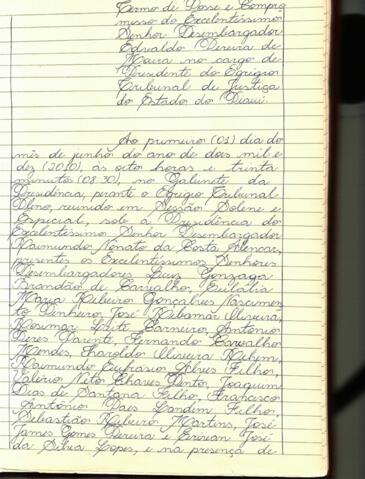 Termo de Posse e Compro
misso do Excelentíssimo
Senhor Desembargador
Edvaldo Pereira de
Moura no cargo de
Presidente do Egrégio
Tribunal de Justiça
do Estado do Piauí.
Ao primeiro (01) dia do
mês de junho do ano de dois mil e
dez (2010), às oito horas e trinta
minutos (08:30), no Gabinete da
Presidência, perante o Egrégio Tribunal
Pleno, reunido em Sessão Solene e
Especial, sob a Presidência do
Excelentíssimo Senhor Desembargador
Raimundo Nonato da Costa Alencar,
presentes os Excelentíssimos Senhores
Desembargadores Luiz Gonzaga
Brandão de Carvalho, Eulália
Maria Ribeiro Gonçalves Nascimen
to Pinheiro, José Ribamar Oliveira,
Rosimar Leite Carneiro, Antônio
Peres Parente, Fernando Carvalho
Mendes, Haroldo Oliveira Rehem,
Raimundo Eufrásio Alves Filho,
Valério Neto Chaves Pinto, Joaquim
Dias de Santana Filho, Francisco
Antônio Paes Landim Filho,
Sebastião Ribeiro Martins, José
James Gomes Pereira e Erivan José
da Silva Lopes, e na presença de